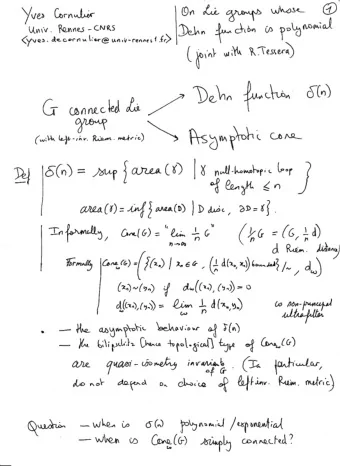 Yves Cornulier
Univ. Rennes - CNRS
<yves.decornulier@univ-rennes1.fr>
On Lie groups whose
Dehn function is polynomial
(joint with R. Tessera)
1
G connected Lie
group
(with left-inv. Riem. metric)
Dehn function δ(n)
Asymptotic cone
Def δ(n) = sup { area(γ) | γ null-homotopic loop
of length ≤ n }
area(γ) = inf { area(D) | D disc, ∂D = γ }.
Informally, Cone(G) = "lim n→∞ 1/n G" (1/n G = (G, 1/n d)
d Riem. distance)
Formally Cone_ω(G) = ( { (x_n) | x_n ∈ G, (1/n d(x_n, x_0)) bounded } /~, d_ω )
(x_n) ~ (y_n) if d_ω((x_n), (y_n)) = 0
d((x_n), (y_n)) = lim_ω 1/n d(x_n, y_n) ω non-principal
ultrafilter
• — the asymptotic behaviour of δ(n)
— the bilipschitz [hence topological] type of Cone_ω(G)
are quasi-isometry invariants of G. (In particular,
do not depend on choice of left inv. Riem. metric)
Question — when is δ(n) polynomial / exponential
— when is Cone_ω(G) simply connected?